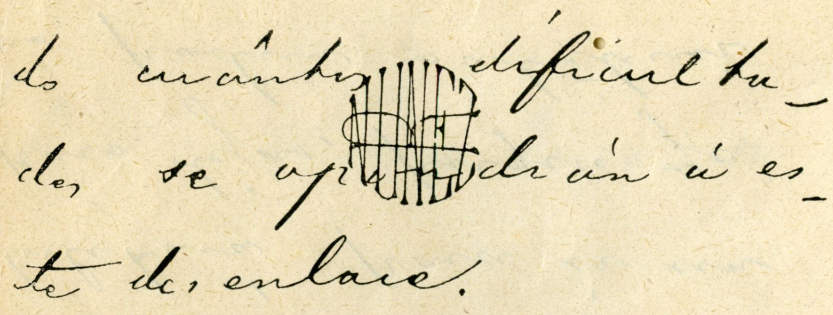 do cuántas dificulta-
des se opondrán á es-
te desenlace.